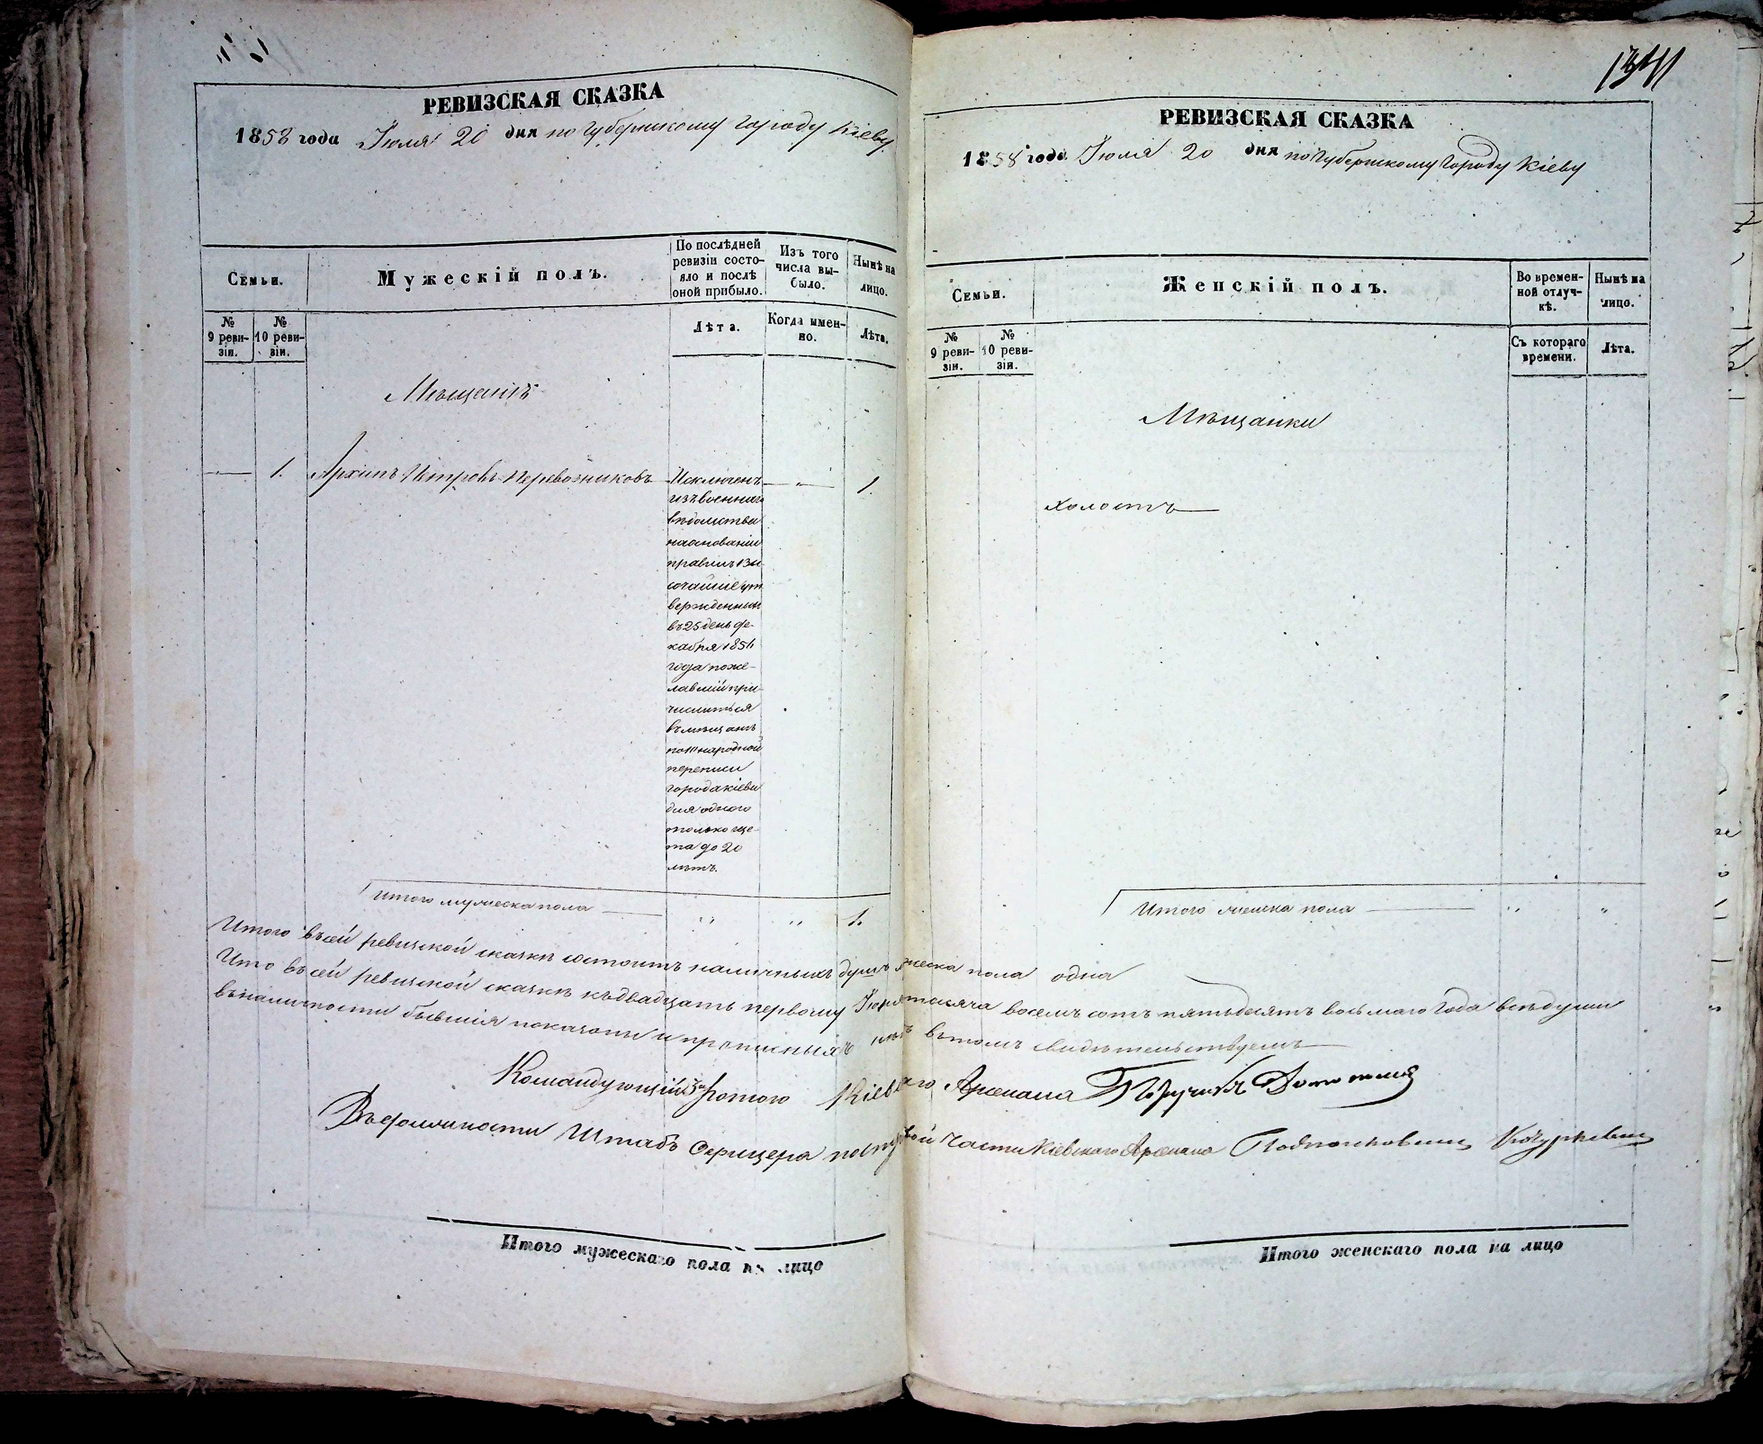 РЕВИЗСКАЯ СКАЗКА
1858 года Іюля 20 дня по Губернскому городу Кіеву
Семьи.
Мужескій полъ.
По послѣдней ревизіи состояло и послѣ оной прибыло.
Изъ того числа выбыло.
Нынѣ на лицо.
№ 9 ревизіи.
№ 10 ревизіи.
Лѣта.
Когда именно.
Лѣта.
Мѣщанинъ
1. Архипъ Петровъ Перевозниковъ
Исключенъ
изъ военнаго
вѣдомства
на основаніи
правилъ Вы
сочайше ут
вержденныхъ
въ 25 день де-
кабря 1856
года поже-
лавшій при-
числиться
въ мѣщане
по 10 народной
переписи
города Кіева
для одного
только сче-
та до 20
лѣтъ.
1.
Итого мужеска пола " " 1.
РЕВИЗСКАЯ СКАЗКА
1858 года Іюля 20 дня по Губернскому Городу Кіеву
Семьи.
Женскій полъ.
Во временной отлучкѣ.
Нынѣ на лицо.
№ 9 ревизіи.
№ 10 ревизіи.
Съ котораго времени.
Лѣта.
Мѣщанки
холостъ
Итого женска пола " "
Итого въ сей ревизской сказкѣ состоитъ наличныхъ душъ мужеска пола одна
Что въ сей ревизской сказкѣ къ двадцать первому Іюля тысяча восемь сотъ пятьдесятъ восьмаго года всѣ души
въ наличности бывшія показаны и прописныхъ нѣтъ въ томъ свидѣтельствуемъ
Командующій ротою Кіевскаго Арсенала Поручикъ
Въ должности Штабъ Офицера по части Кіевскаго Арсенала Подполковникъ
Итого мужескаго пола на лицо
Итого женскаго пола на лицо